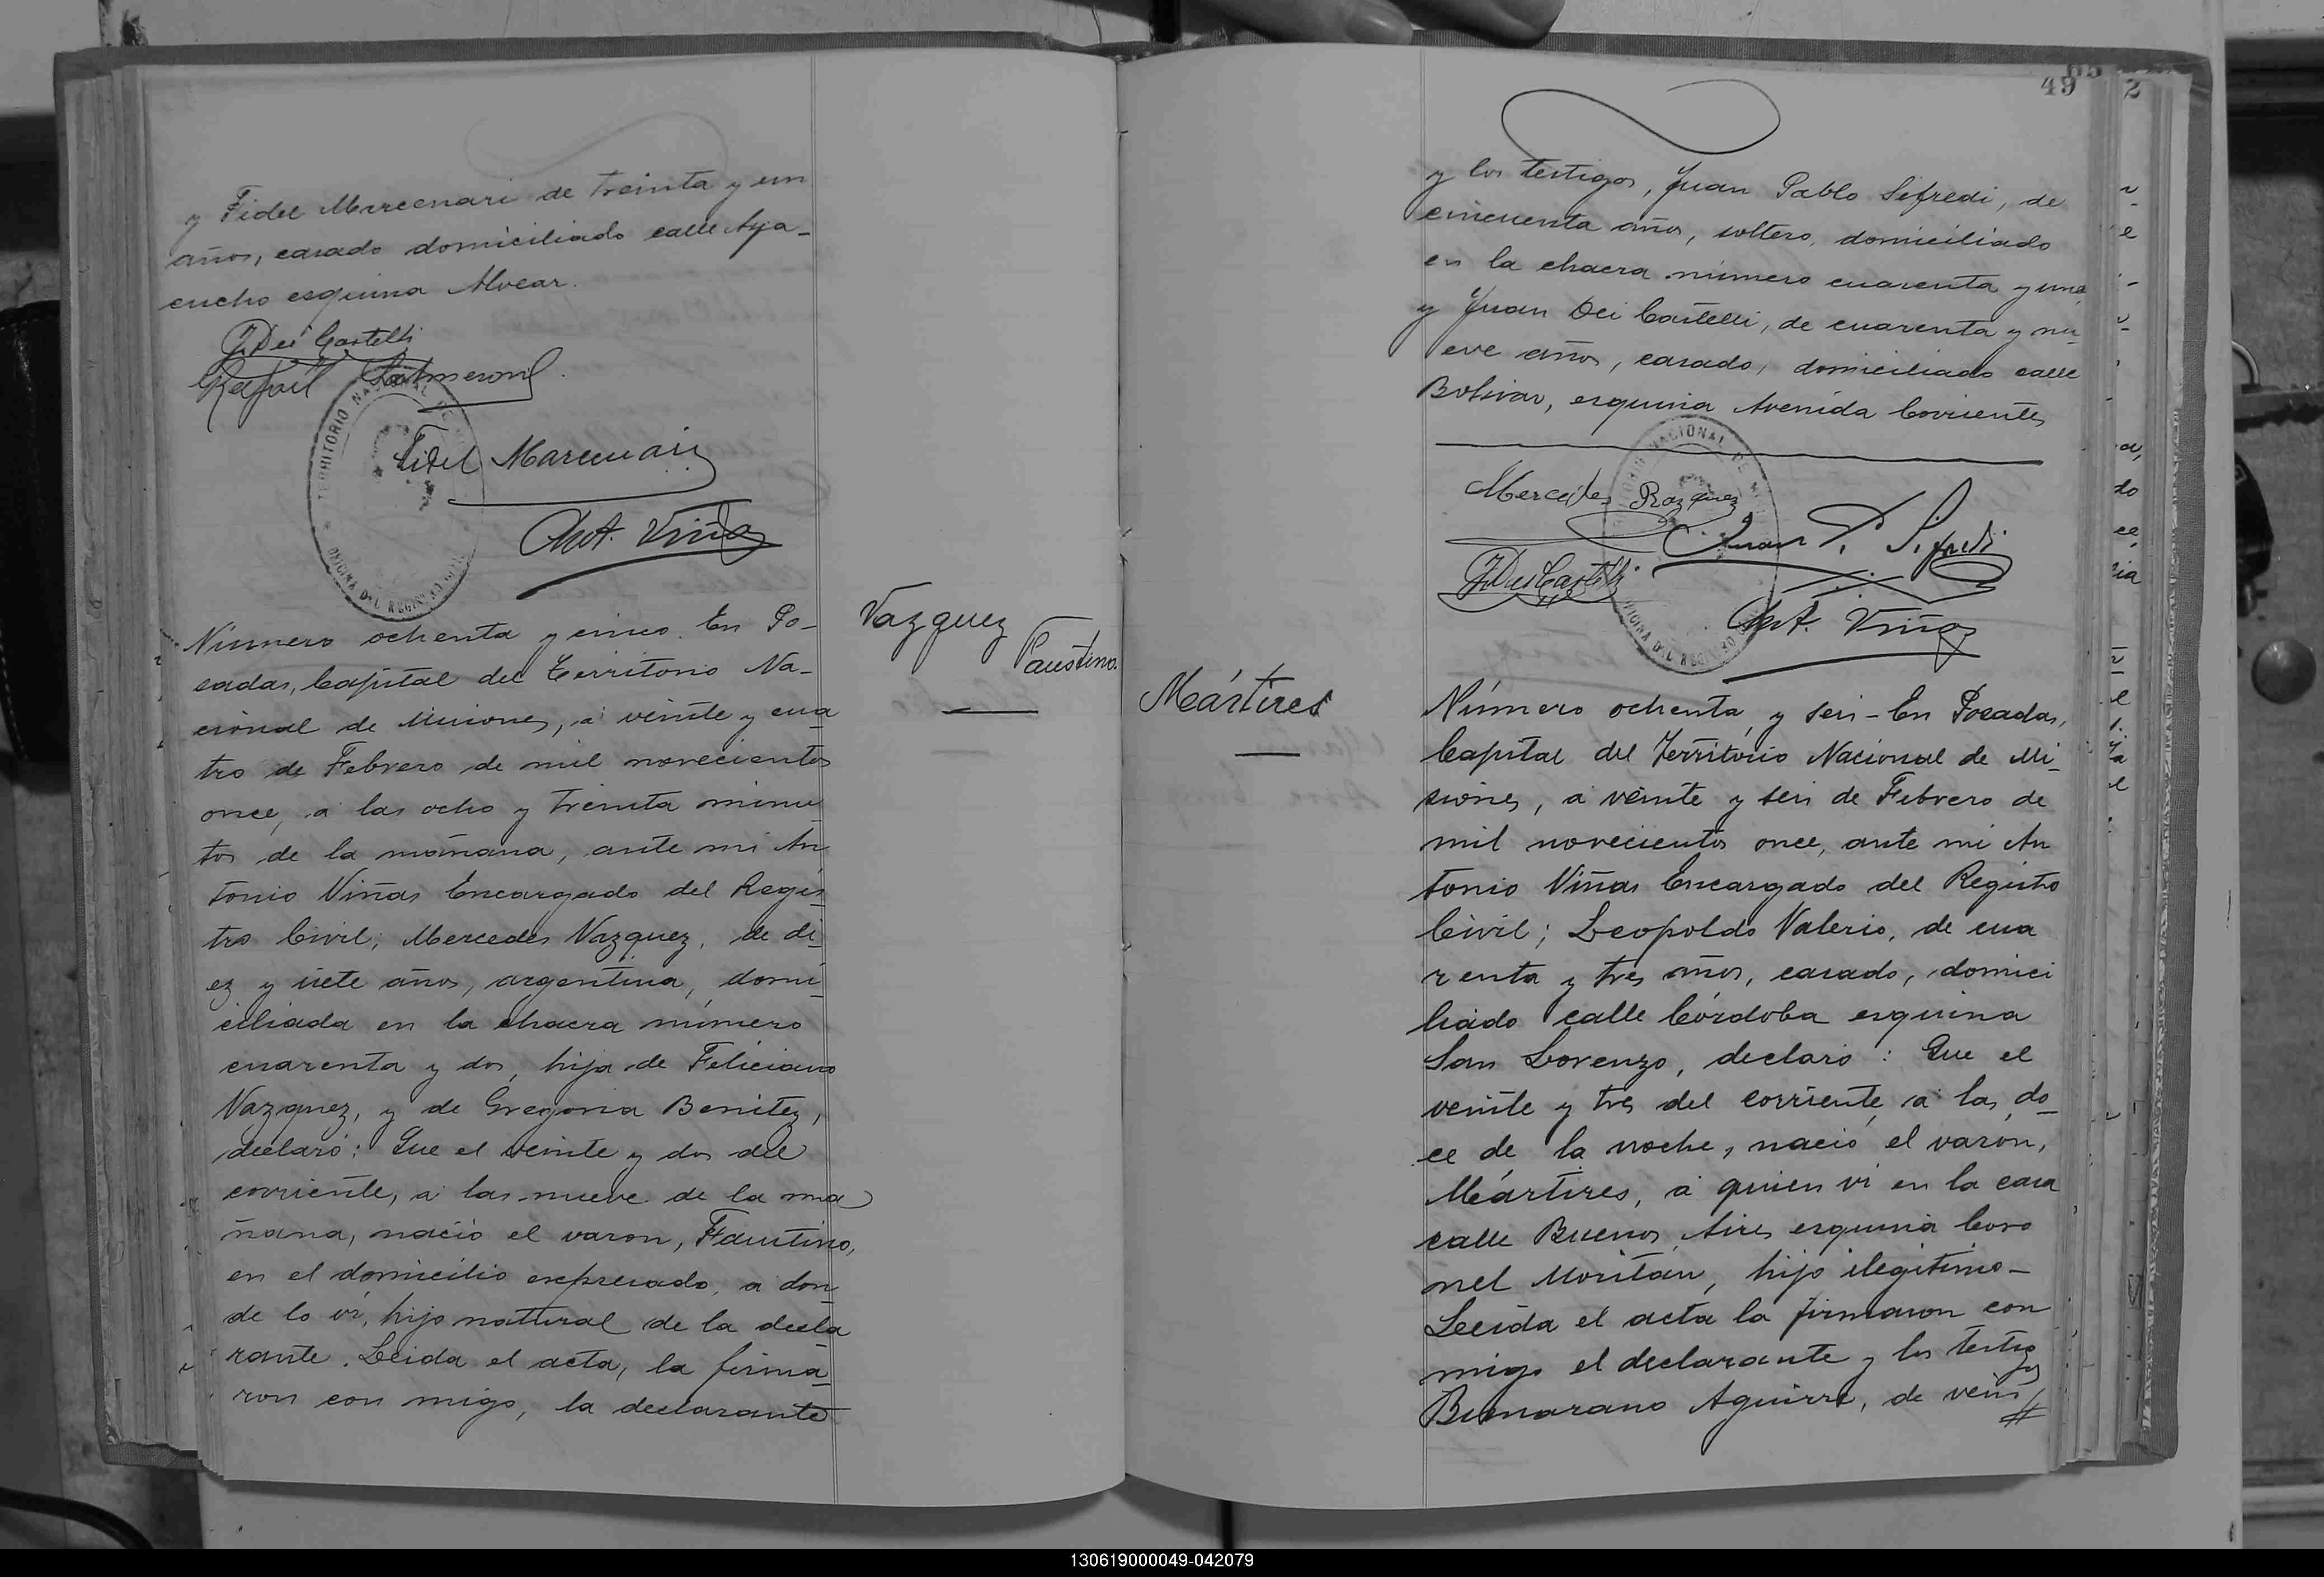 y Fidel Mercenari de treinta y un
años, casado domiciliado calle Aya-
cucho esquina Alvear.
J. Dei Castelli
Rafael Salmeron
TERRITORIO NACIONAL DE
OFICINA DEL REGISTRO CIVIL
Fidel Marcenari
Ant. Viñas
Número ochenta y cinco. En Po-
sadas, Capital del Territorio Na-
cional de Misiones, á veinte y cua
tro de Febrero de mil novecientos
once, a las ocho y treinta minu
tos de la mañana, ante mi An
tonio Viñas Encargado del Regis
tro Civil; Mercedes Vazquez, de di
ez y siete años, argentina, domi
ciliada en la chacra número
cuarenta y dos, hija de Feliciano
Vazquez, y de Gregoria Benitez,
declaró: Que el veinte y dos del
corriente, a las nueve de la ma
ñana, nació el varon, Faustino,
en el domicilio expresado, a don
de lo ví, hijo natural de la decla
rante. Leida el acta, la firma
ron con migo, la declarante
Vazquez
Faustino.
49
2
y los testigos, Juan Pablo Sifredi, de
cincuenta años, soltero, domiciliado
en la chacra número cuarenta y una
y Juan Dei Castelli, de cuarenta y nu
eve años, casado, domiciliado calle
Bolivar, esquina Avenida Corrientes
NACIONAL DE
OFICINA DEL REGISTRO
Mercedes Bazquez
Juan P. Sifredi
J. Dei Castelli
Ant. Viñas
Mártires
Número ochenta y seis - En Posadas,
Capital del Territorio Nacional de Mi
siones, a veinte y seis de Febrero de
mil novecientos once, ante mi An
tonio Viñas Encargado del Registro
Civil; Leopoldo Valerio, de cua
renta y tres años, casado, domici
liado calle Córdoba esquina
San Lorenzo, declaró: Que el
veinte y tres del corriente, a las do
ce de la noche, nació el varón,
Mártires, a quien ví en la casa
calle Buenos Aires esquina Coro
nel Moritán, hijo ilegitimo-
Leida el acta la firmaron con
migo el declarante y los testigos
Aguirre, de vein
130619000049-042079